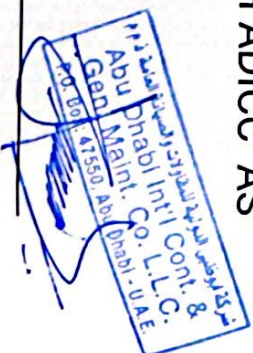 ADICC AS
شركة أبوظبي الدولية للمقاولات والصيانة العامة ذ.م.م
Abu Dhabi Int'l Cont. &
Gen. Maint. Co. L.L.C.
P.O. Box: 47550, Abu Dhabi - U.A.E.